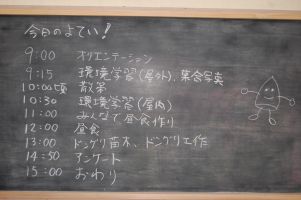 今日のよてい!
9:00 オリエンテーション
9:15 環境学習(屋外)、集合写真
10:00頃 散策
10:30 環境学習(屋内)
11:00 みんなで昼食作り
12:00 昼食
13:00 ドングリ苗木、ドングリ工作
14:50 アンケート
15:00 おわり